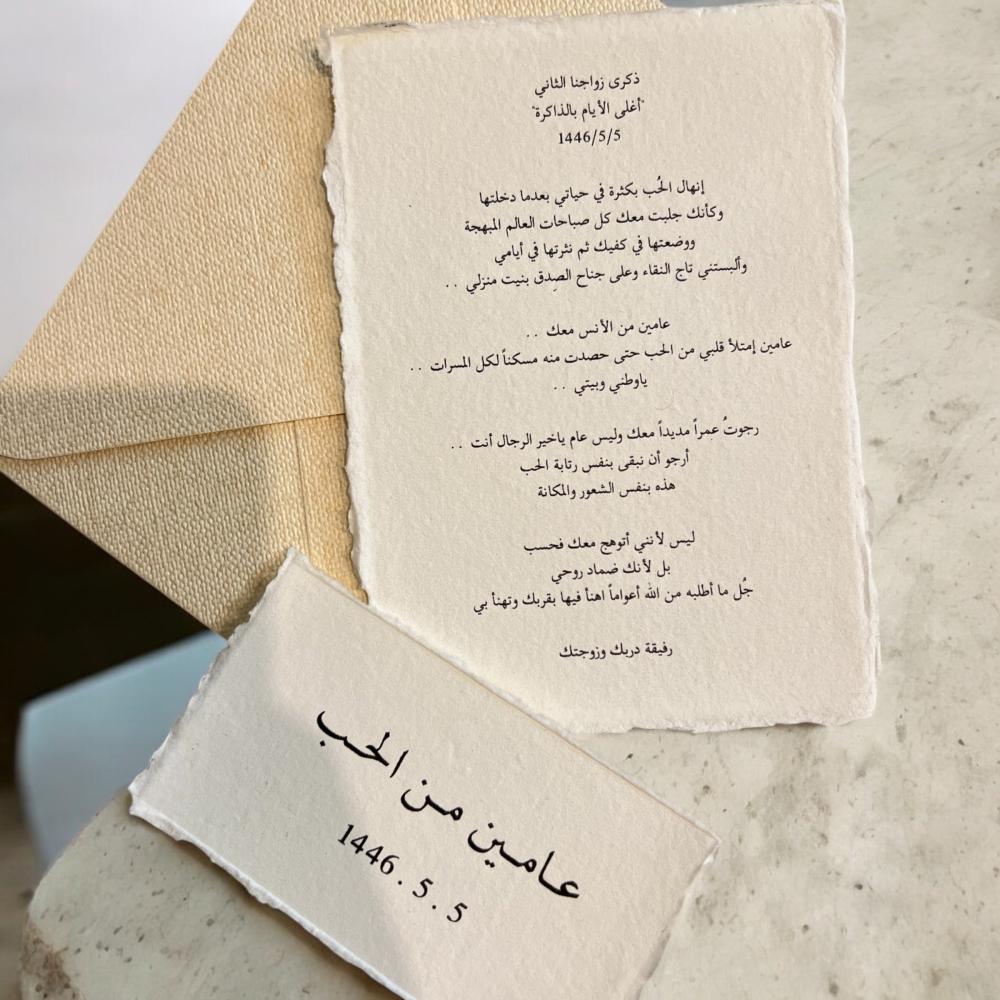 ذكرى زواجنا الثاني
"أغلى الأيام بالذاكرة"
1446/5/5
إنهال الحُب بكثرة في حياتي بعدما دخلتها
وكأنك جلبت معك كل صباحات العالم المبهجة
ووضعتها في كفيك ثم نثرتها في أيامي
وألبستني تاج النقاء وعلى جناح الصِدق بنيت منزلي . .
عامين من الأنس معك . .
عامين إمتلأ قلبي من الحب حتى حصدت منه مسكناً لكل المسرات . .
ياوطني وبيتي . .
رجوتُ عمراً مديداً معك وليس عام ياخير الرجال أنت . .
أرجو أن نبقى بنفس رتابة الحب
هذه بنفس الشعور والمكانة
ليس لأنني أتوهج معك فحسب
بل لأنك ضماد روحي
جُل ما أطلبه من الله أعواماً اهنأ فيها بقربك وتهنأ بي
رفيقة دربك وزوجتك
عامين من الحب
1446 . 5 . 5